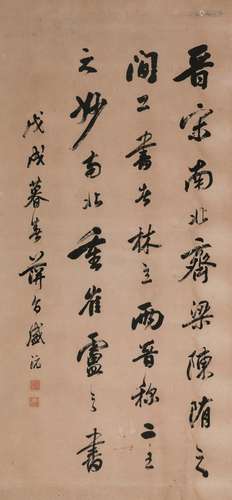 晉宋南北齊梁陳隋之
間工書者林立兩晉稱二王
之妙南北重崔盧之書
戊戌暮春萍旨盛沅